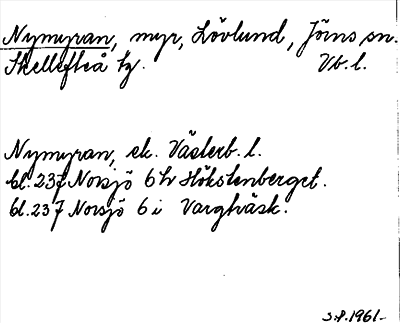 Nymyran, myr, Lövlund, Jörns sn.
Skellefteå tg. Vb. l.
Nymyran, ek. Västerb. l.
bl. 237 Norsjö 6 h Hökstenberget.
bl. 237 Norsjö 6 i Vargträsk.
S.P. 1961-